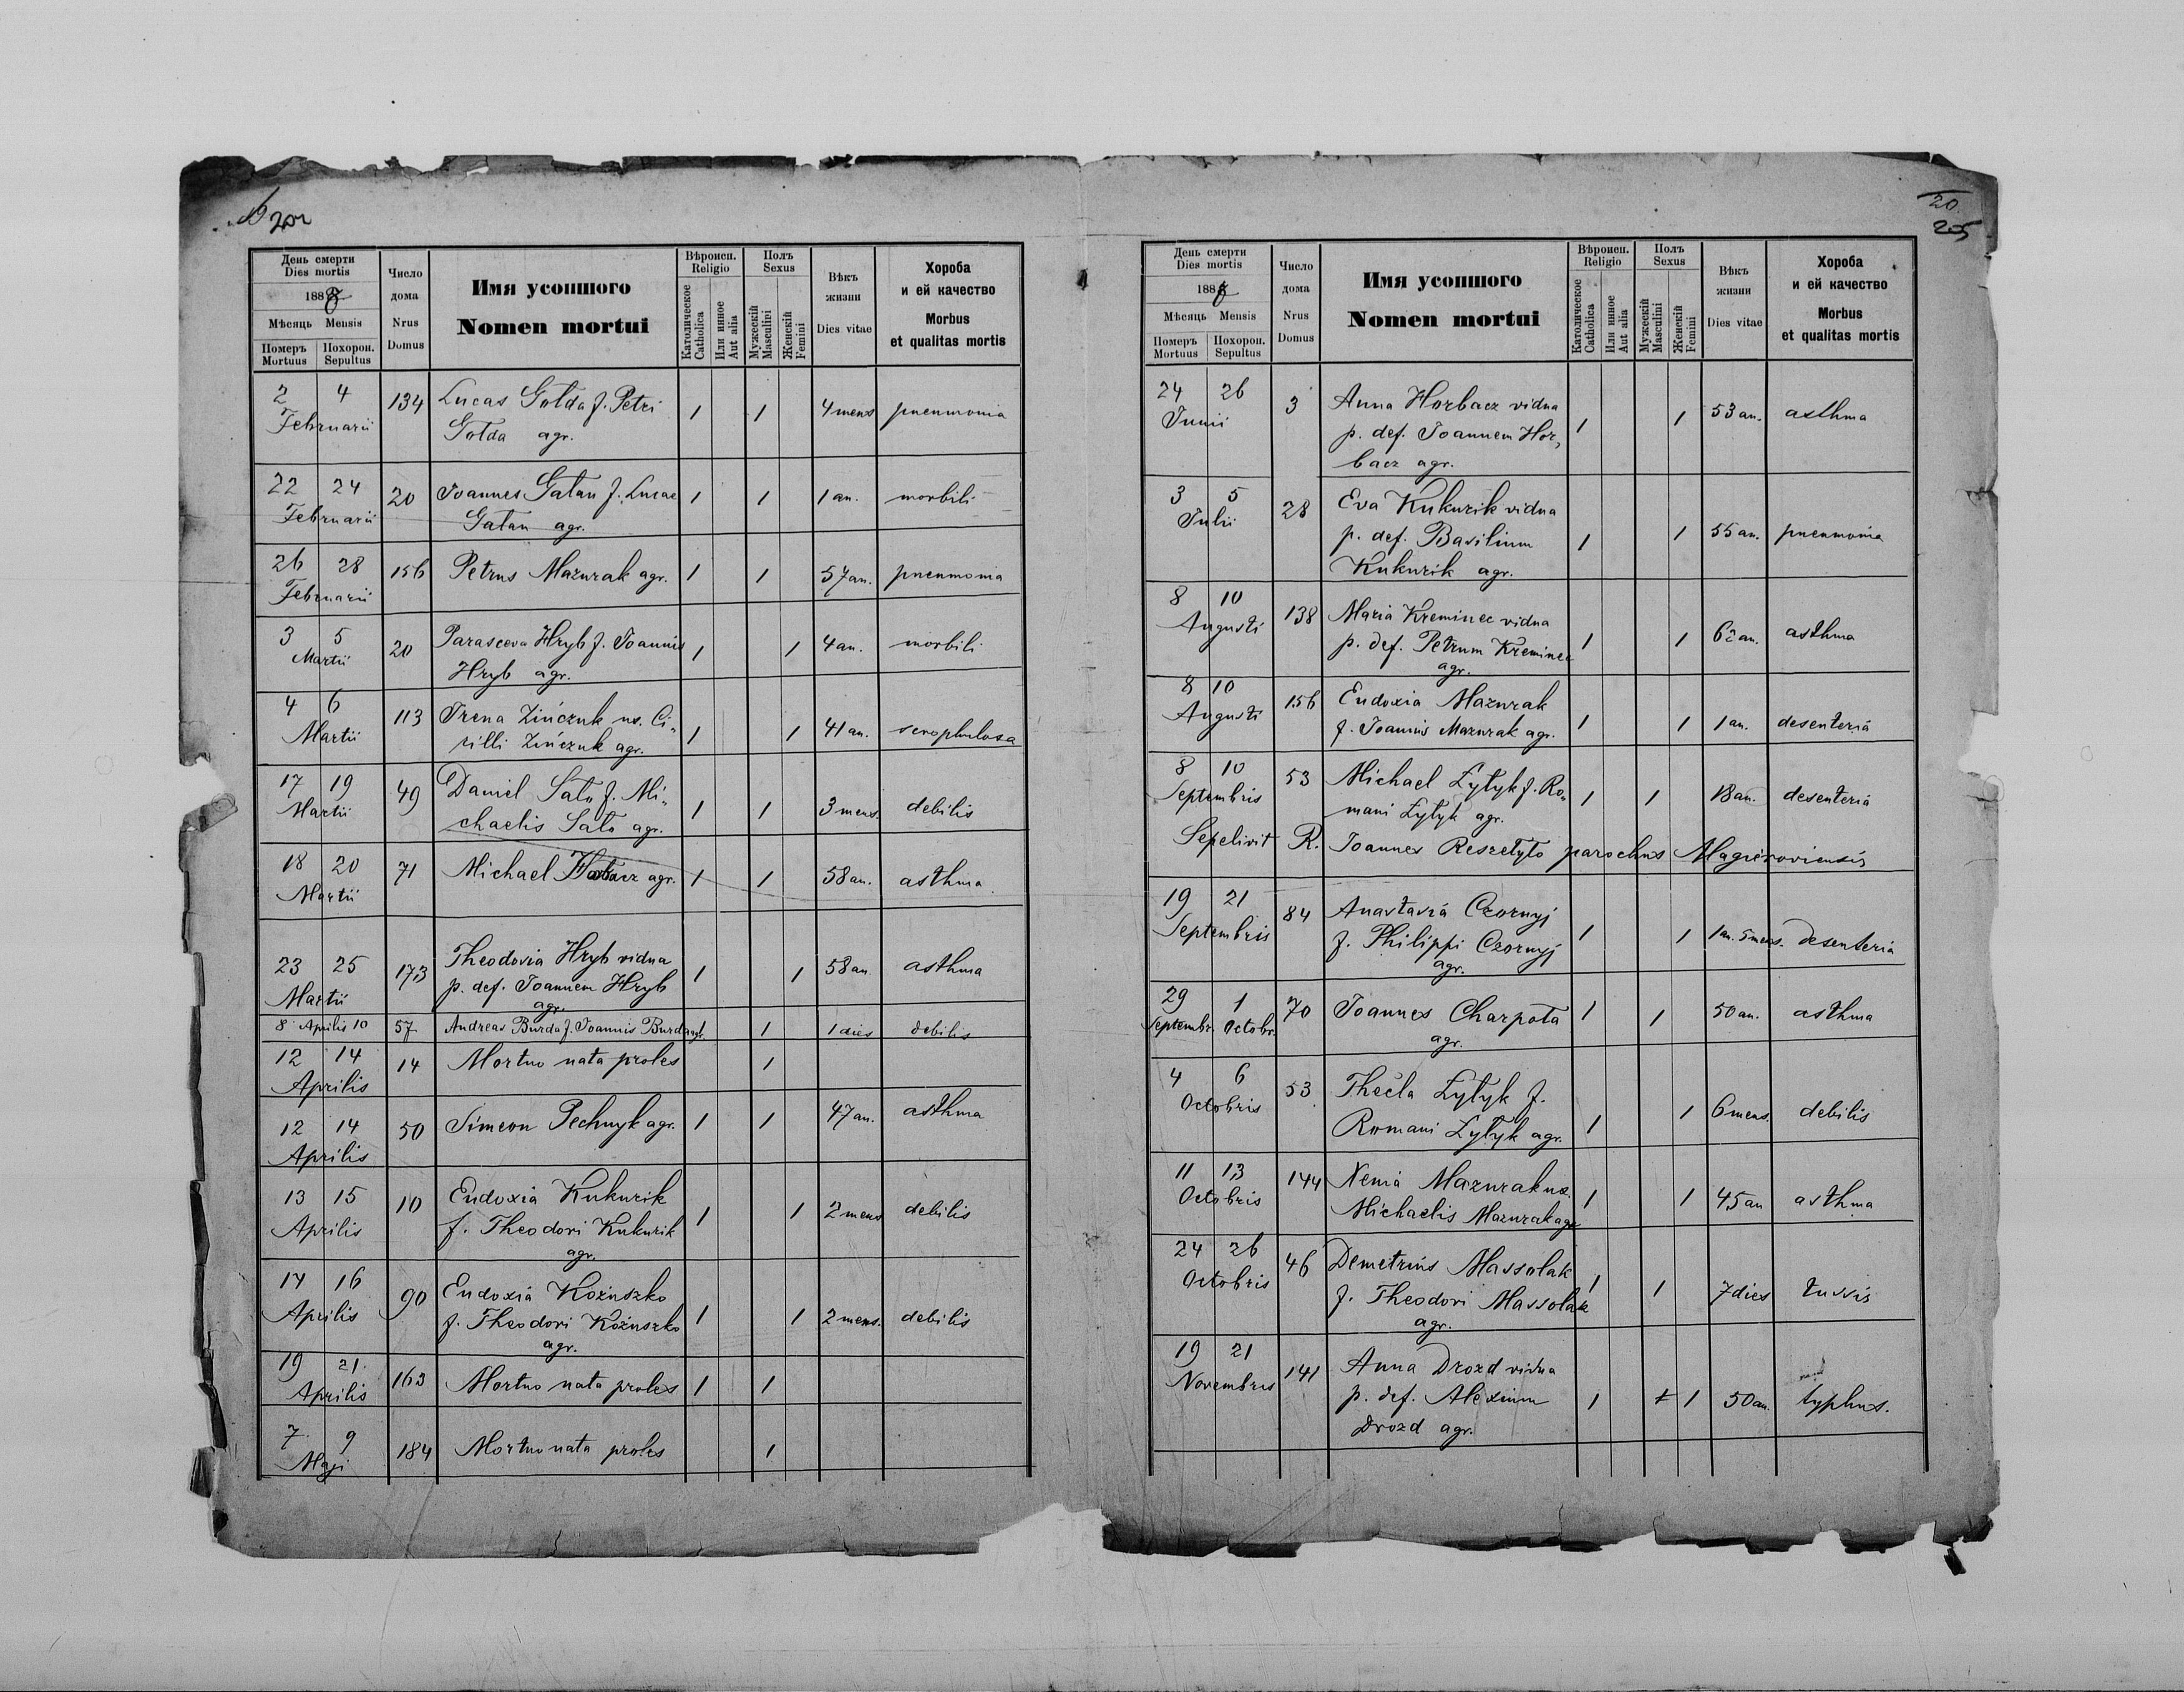 204
День смерти
Dies mortis
1888
Мѣсяць Mensis
Померъ Mortuus
Похорон. Sepultus
Число дома
Nrus Domus
Имя усопшого
Nomen mortui
Вѣроисп.
Religio
Католическое Catholica
Или инное Aut alia
Полъ
Sexus
Мужескій Masculini
Женскій Femini
Вѣкъ жизни
Dies vitae
Хороба
и ей качество
Morbus
et qualitas mortis
2 4 Februarii 134 Lucas Gołda f. Petri
Gołda agr. 1 1 4 mens pneumonia
22 24 Februarii 20 Joannes Gatan f. Lucae
Gatan agr. 1 1 1 an. morbili
26 28 Februarii 156 Petrus Mazurak agr. 1 1 57 an. pneumonia
3 5 Martii 20 Parasceva Hryb f. Joannis
Hryb agr. 1 1 4 an. morbili
4 6 Martii 113 Irena Zińczuk ux. Ci„
rilli Zińczuk agr. 1 1 41 an. scrophulosa
17 19 Martii 49 Daniel Sało f. Mi„
chaelis Sało agr. 1 1 3 mens. debilis
18 20 Martii 71 Michael agr. 1 1 58 an. asthma
23 25 Martii 173 Theodosia Hryb vidua
p. def. Joannem Hryb
agr. 1 1 58 an. asthma
8 Aprilis 10 57 Andreas Burda f. Joannis Burda agr. 1 1 dies debilis
12 14 Aprilis 14 Mortuo nata proles 1
12 14 Aprilis 50 Simeon Pechnyk agr. 1 1 47 an. asthma
13 15 Aprilis 10 Eudoxia Kukurik
f. Theodori Kukurik
agr. 1 1 2 mens debilis
14 16 Aprilis 90 Eudoxia Kożuszko
f. Theodori Kożuszko
agr. 1 1 2 mens. debilis
19 21 Aprilis 163 Mortuo nata proles 1 1
7 9 Maji 184 Mortuo nata proles 1
20.
205
День смерти
Dies mortis
1888
Мѣсяць Mensis
Померъ Mortuus
Похорон. Sepultus
Число дома
Nrus Domus
Имя усопшого
Nomen mortui
Вѣроисп.
Religio
Католическое Catholica
Или инное Aut alia
Полъ
Sexus
Мужескій Masculini
Женскій Femini
Вѣкъ жизни
Dies vitae
Хороба
и ей качество
Morbus
et qualitas mortis
24 26 Junii 3 Anna Horbacz vidua
p. def. Joannem Hor„
bacz agr. 1 1 53 an. asthma
3 5 Julii 28 Eva Kukurik vidua
p. def. Basilium
Kukurik agr. 1 1 55 an. pneumonia
8 10 Augusti 138 Maria Kreminec vidua
p. def. Petrum Kreminec
agr. 1 1 62 an. asthma
8 10 Augusti 156 Eudoxia Mazurak
f. Joannis Mazurak agr. 1 1 1 an. desenteria
8 10 Septembris 53 Michael Żytyk f. Ro„
mani Żytyk agr. 1 1 18 an. desenteria
Sepelivit R. Joannes Reszetyło parochus Magieroviensis
19 21 Septembris 84 Anastasia Czornyj
f. Philippi Czornyj
agr. 1 1 1 an. 5 mens. desenteria
29 Septembr. 1 Octobr. 70 Joannes Charpota
agr. 1 1 50 an. asthma
4 6 Octobris 53 Thecla Żytyk f.
Romani Żytyk agr. 1 1 6 mens. debilis
11 13 Octobris 144 Xenia Mazurak ux.
Michaelis Mazurak agr 1 1 45 an asthma
24 26 Octobris 46 Demetrius Massolak
f. Theodori Massolak
agr. 1 1 7 dies tussis
19 21 Novembris 141 Anna Drozd vidua
p. def. Alexium
Drozd agr. 1 1 50 an. typhus.